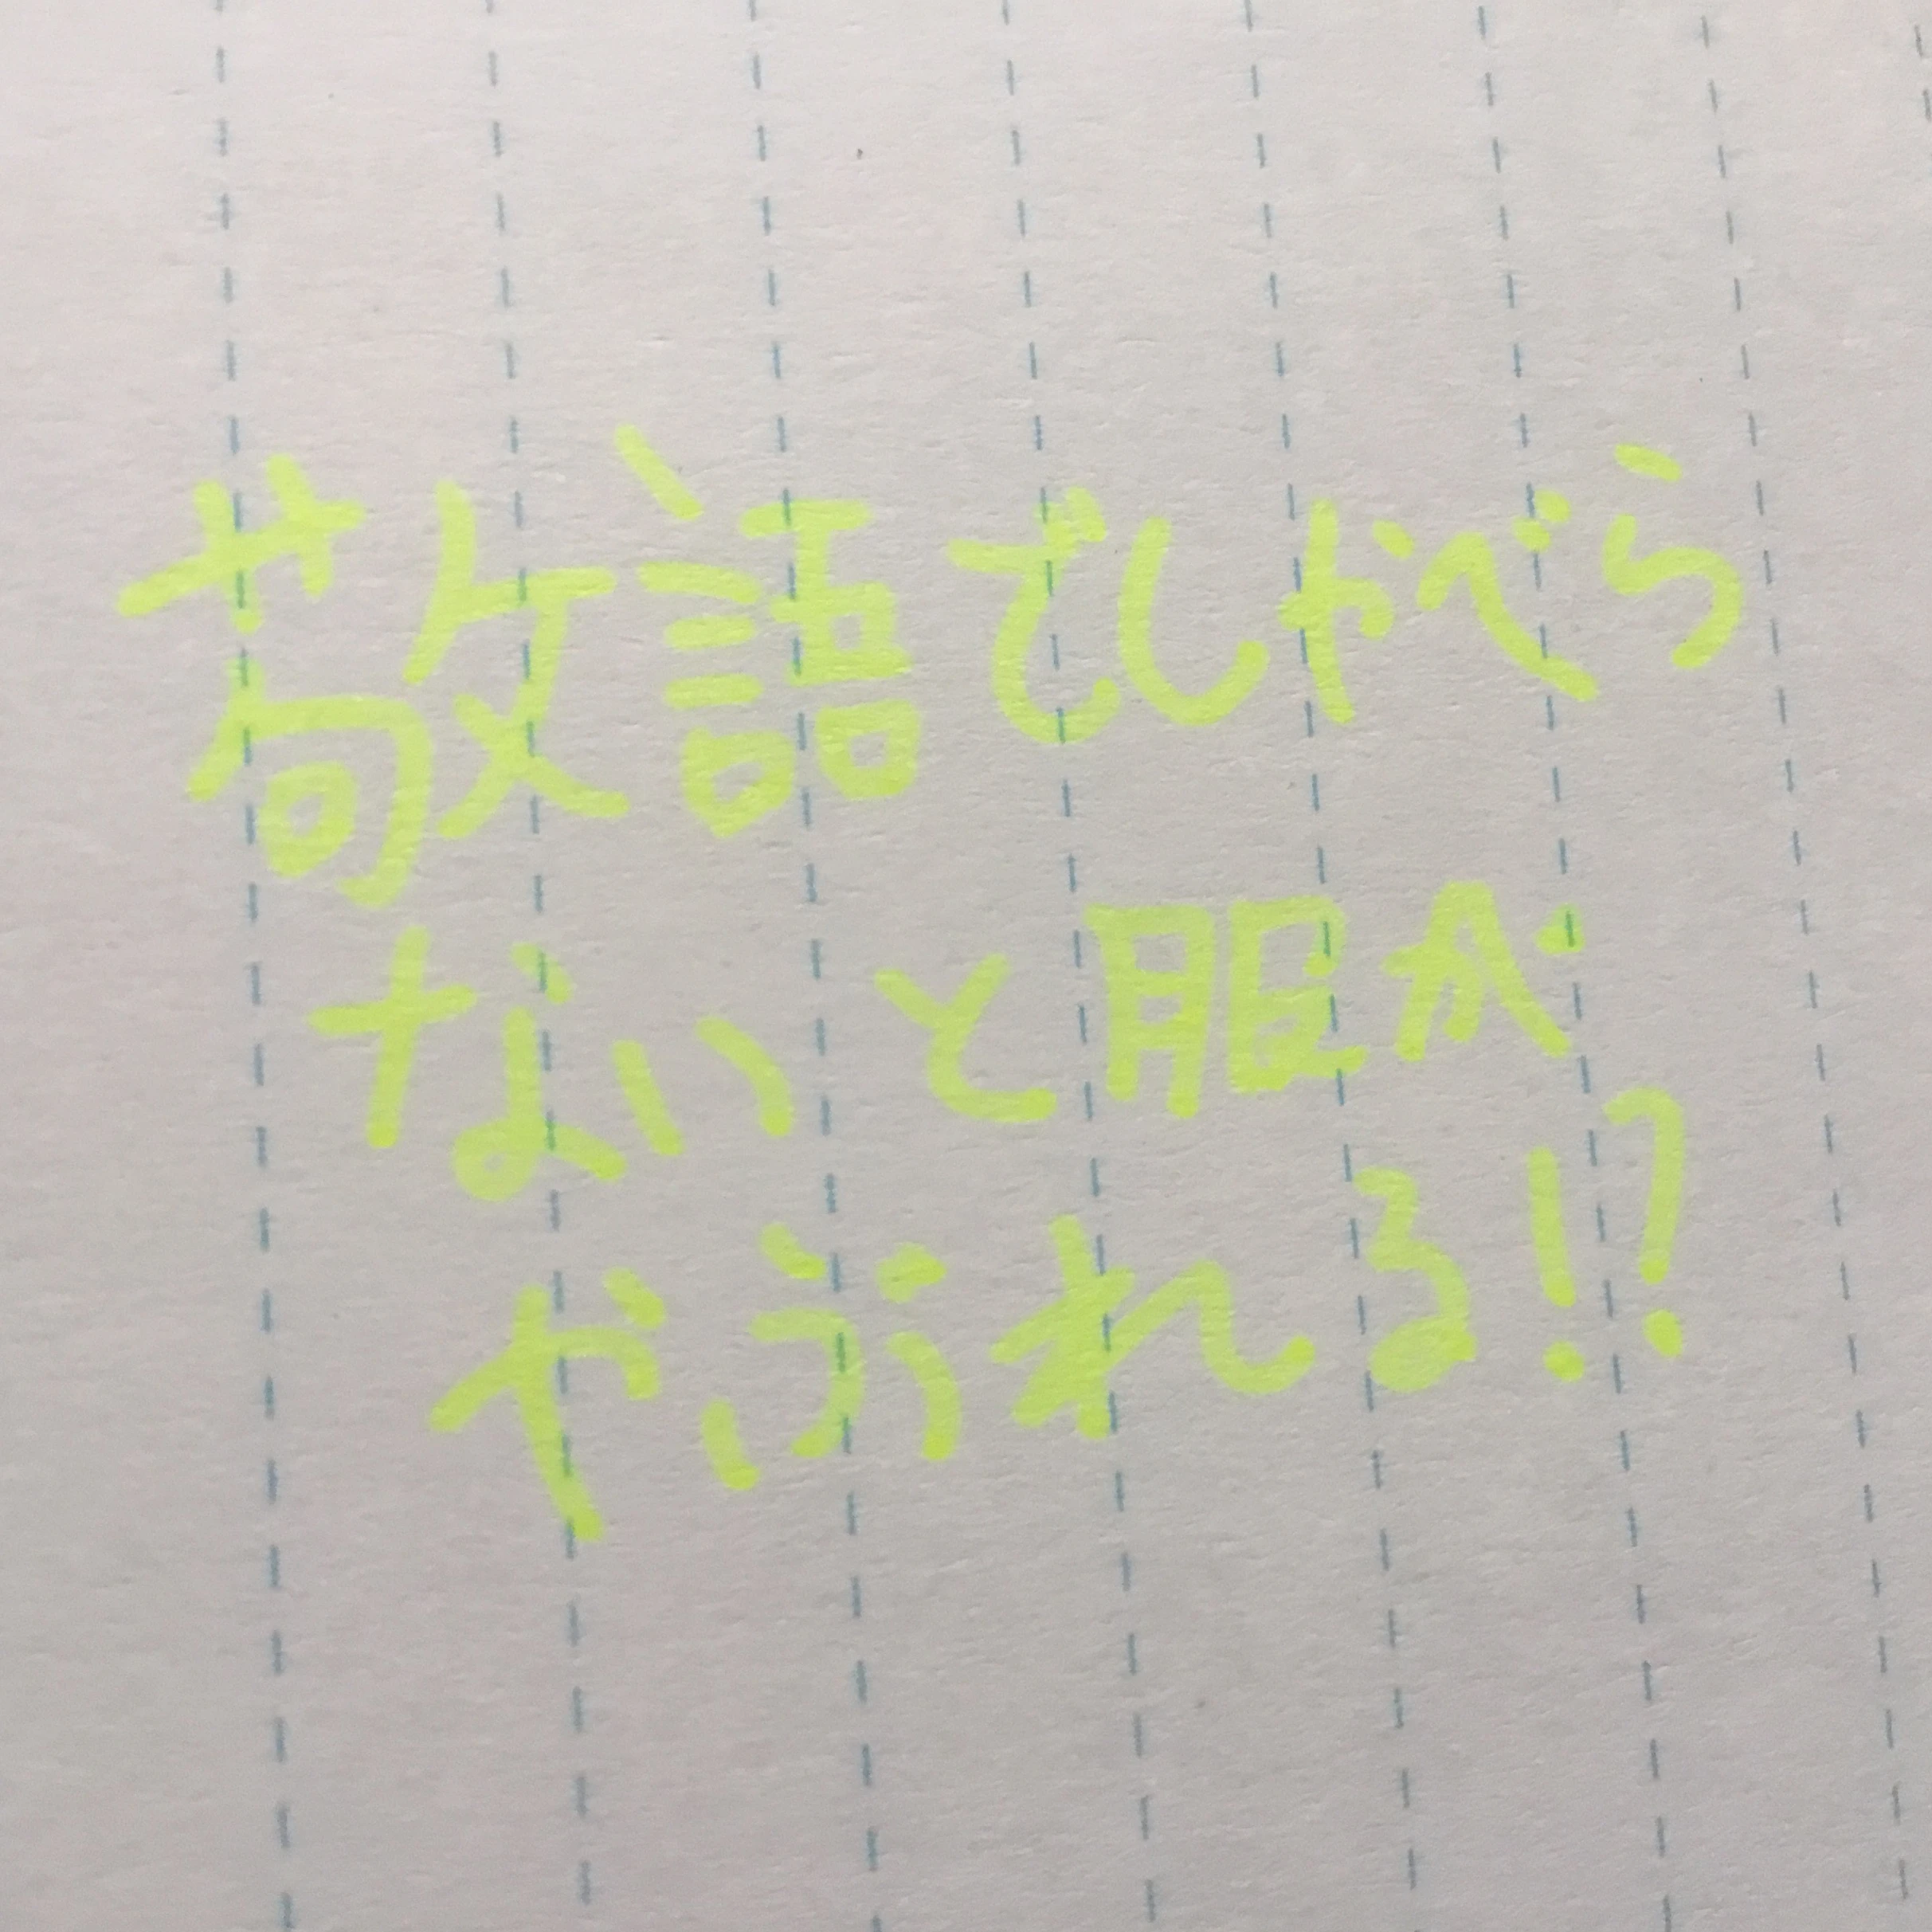 敬語でしゃべら
ないと服が
やぶれる!?